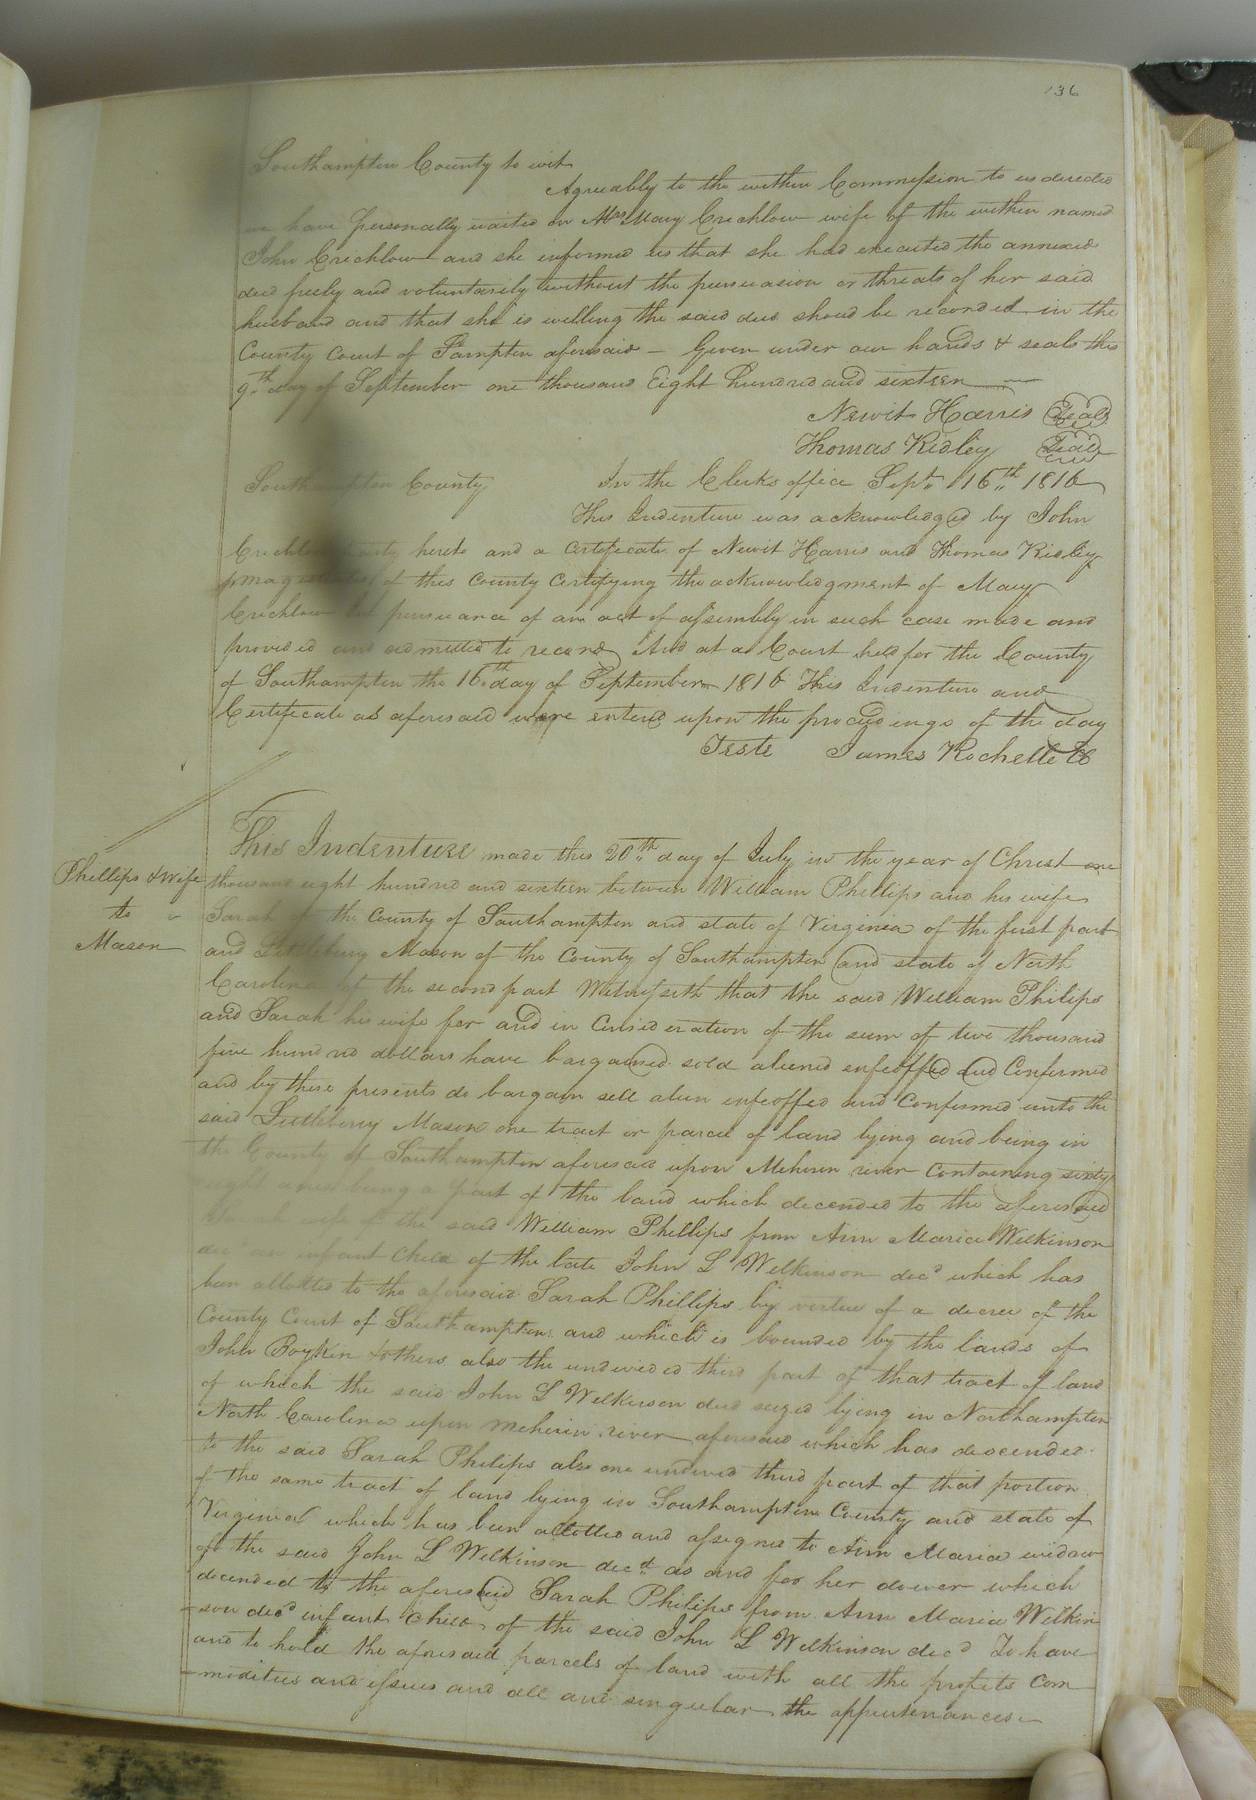 136
Southampton County to wit
Agreeably to the within Commission to us directed
we have personally waited on Mrs Mary Crichlow wife of the within named
John Crichlow and she informed us that she had executed the annexed
deed freely and voluntarily without the persuasion or threats of her said
husband and that she is willing the said deed shoud be recorded in the
County Court of Sampton aforesaid – Given under our hands & seals this
9th day of September one thousand Eight hundred and sixteen
Newit Harris Seal
Thomas Ridley Seal
Southampton County In the Clerks office Sept. 16th 1816
This Indenture was acknowledged by John
Crichlow party hereto and a certificate of Newit Harris and Thomas Ridley
magistrates of this County Certifying the acknowledgment of Mary
Crichlow in pursuance of an act of assembly in such case made and
provided and admitted to record And at a Court held for the County
of Southampton the 16th day of September 1816 This Indenture and
Certificate as aforesaid were enterd upon the proceedings of the day
Teste James Rochelle CC
Phillips & wife
to
Mason
This Indenture made this 20th day of July in the year of Christ one
thousand eight hundred and sixteen between William Phillips and his wife
Sarah of the County of Southampton and state of Virginia of the first part
and Littlebury Mason of the County of Southampton and state of North
Carolina of the second part Witnesseth that the said William Philips
and Sarah his wife for and in Consideration of the sum of two thousand
five hundred dollars have bargained sold aliened enfeoffed and Confirmed
and by these presents do bargain sell alien enfeoffed and Confirmed unto the
said Littleberry Mason one tract or parcel of land lying and being in
the County of Southampton aforesaid upon Meherin river Containing sixty
being a part of the land which decended to the aforesaid
Sarah wife of the said William Phillips from Ann Maria Wilkinson
dec an infant child of the late John L Wilkinson decd which has
been allotted to the aforesaid Sarah Phillips by virtue of a decree of the
County Court of Southampton and which is bounded by the lands of
John Boykin & others also the undivided third part of that tract of land
of which the said John L Wilkinson died seized lying in Northampton
North Carolina upon Meherin river aforesaid which has descended
to the said Sarah Philips also one undivid third part of that portion
of the same tract of land lying in Southampton County and state of
Virginia which has been allotted and assigned to Ann Maria widow
of the said John L Wilkinson decd as and for her dower which
decended to the aforesaid Sarah Philips from Ann Maria Wilkin
son decd infant child of the said John L Wilkinson decd To have
and to hold the aforesaid parcels of land with all the profits Com
modities and issues and all and singular the appurtenances